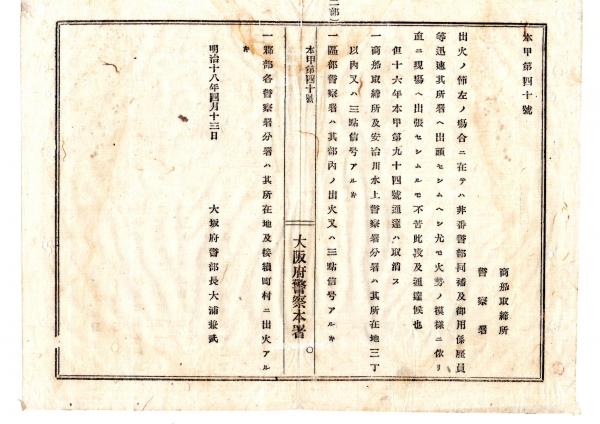 本甲第四十號
商船取締所
警察署
出火ノ節左ノ塲合ニ在テハ非番警部同補及御用係雇員
等迅速其所署ヘ出頭セシムヘシ尤モ火勢ノ模樣ニ依リ
直ニ現塲ヘ出張セシムルモ不苦此段及通達候也
但十六年本甲第九十四號通達ハ取消ス
一商船取締所及安治川水上警察署分署ハ其所在地三丁
以內又ハ三點信号アルキ
一區部警察署ハ其部內ノ出火又ハ三點信号アルキ
本甲第四十號
大阪府警察本署
一郡部各警察署分署ハ其所在地及接續町村ニ出火アル
キ
明治十八年四月十三日
大坂府警部長大浦兼武